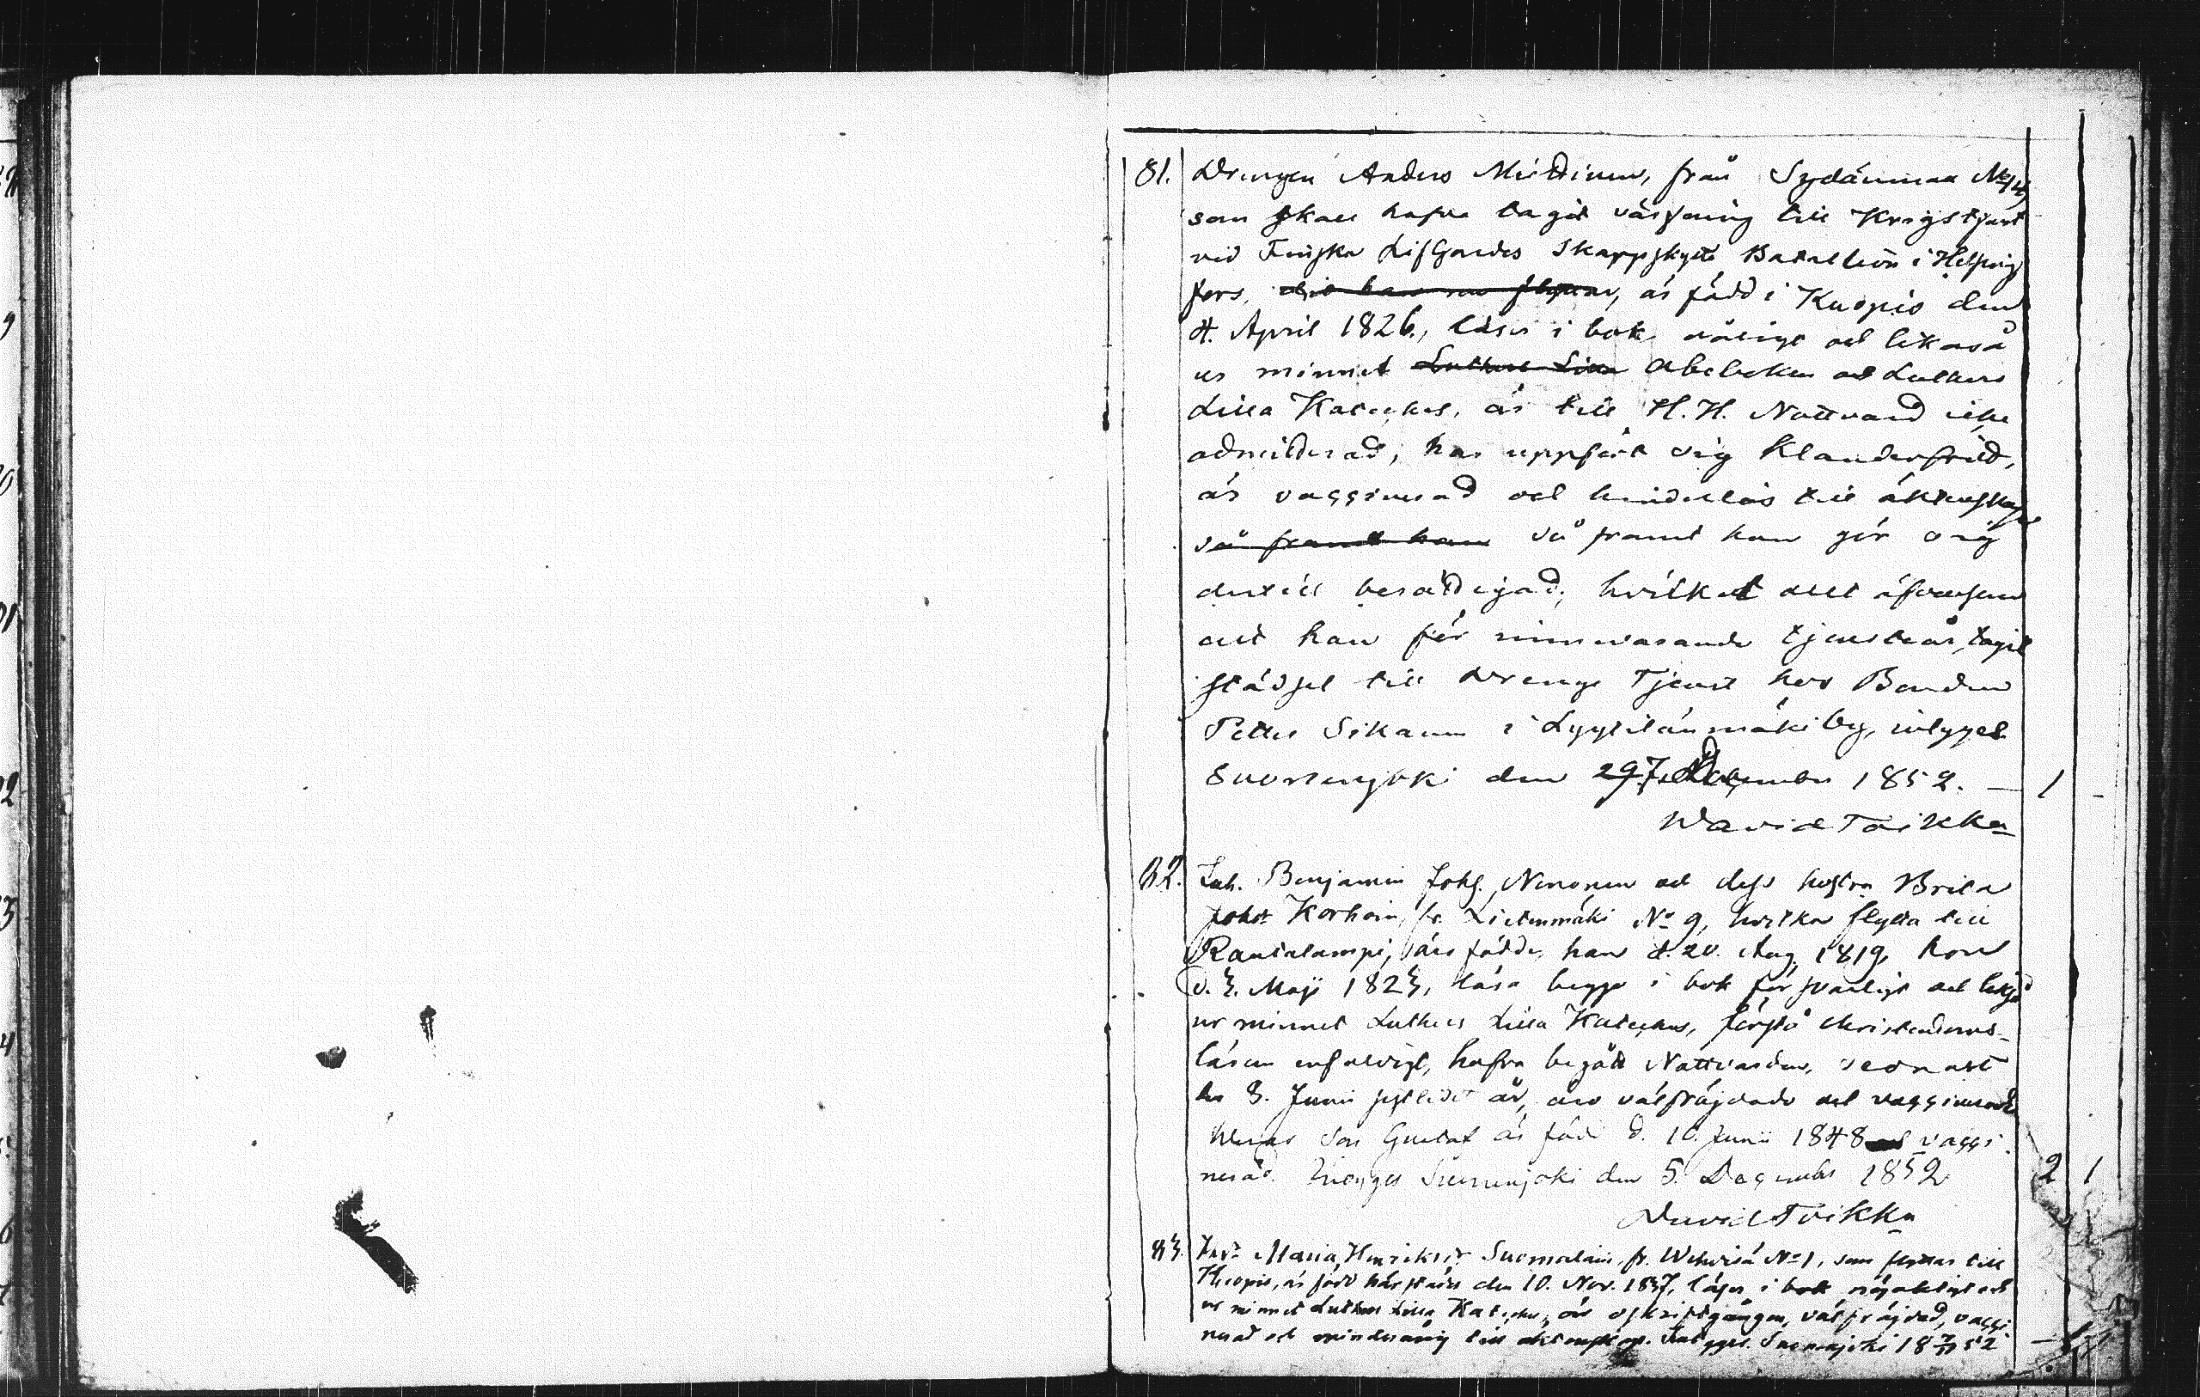 81. Drengen Anders Miettinen, från Sydänmaa No 14
som skall hafva tagit värfning till Krigstjenst
vid Finska LifGardes Skarpskytte Bataillon i Helsing
fors, är född i Kuopio den
4. April 1826, läser i bok nöjligt och likaså
ur minnet Abeboken och Luthers
Lilla Kateches, är till H. H. Nattvard icke
admitterad, har uppfört sig Klanderfritt,
är vaccinerad och hinderlös till äktenskap
så framt han gör sig
dertill berättigad; hvilket allt
att han för innevarande tjensteår, tagit
städsel till Drenge Tjenst hos Bonden
Petter Sikanen i Lyytilänmäki by, intygar
Suonenjoki den December 1852. — 1 -
David Toikka
82. Inh. Benjamin Johs. Nenonen och dess hustru Brita
Johsdr Korhoin, fr. Lietenmäki No 9, hvilka flytta till
Rautalampi, äro födde, han d. 20. Aug. 1819, hon
d. 3. Maji 1823, läsa begge i bok försvarligt och likaså
ur minnet Luthers Lilla Kateches, förstå Christendoms-
läran enfaldigt, hafva begått Nattvarden, sednast
den 8. Junii sistledit år, äro välfräjdade och vaccinerade
Deras son Gustaf är född d. 10. Junii 1848 vacci
nerad. Intygar Suonenjoki den 5. December 1852 2 1
David Toikka
83. Maria Henriksdr Suomalain fr. Wehvisä No 1, som flyttar till
Kuopio, är född härstädes den 10. Nov. 1837, läser i bok nöjaktigt och
ur minnet Luthers Lilla Kateches, är oskriftgången, välfräjdad, vacci
nerad och minderårig till äktenskap. Intygar. Suonenjoki 18 52